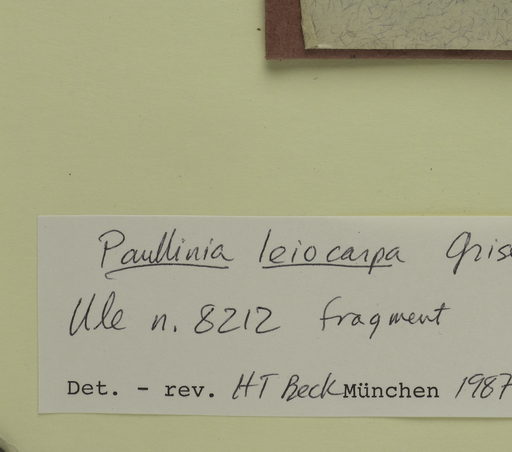 Paullinia leiocarpa Gris
Ule n. 8212 fragment
Det. - rev. HT Beck München 1987